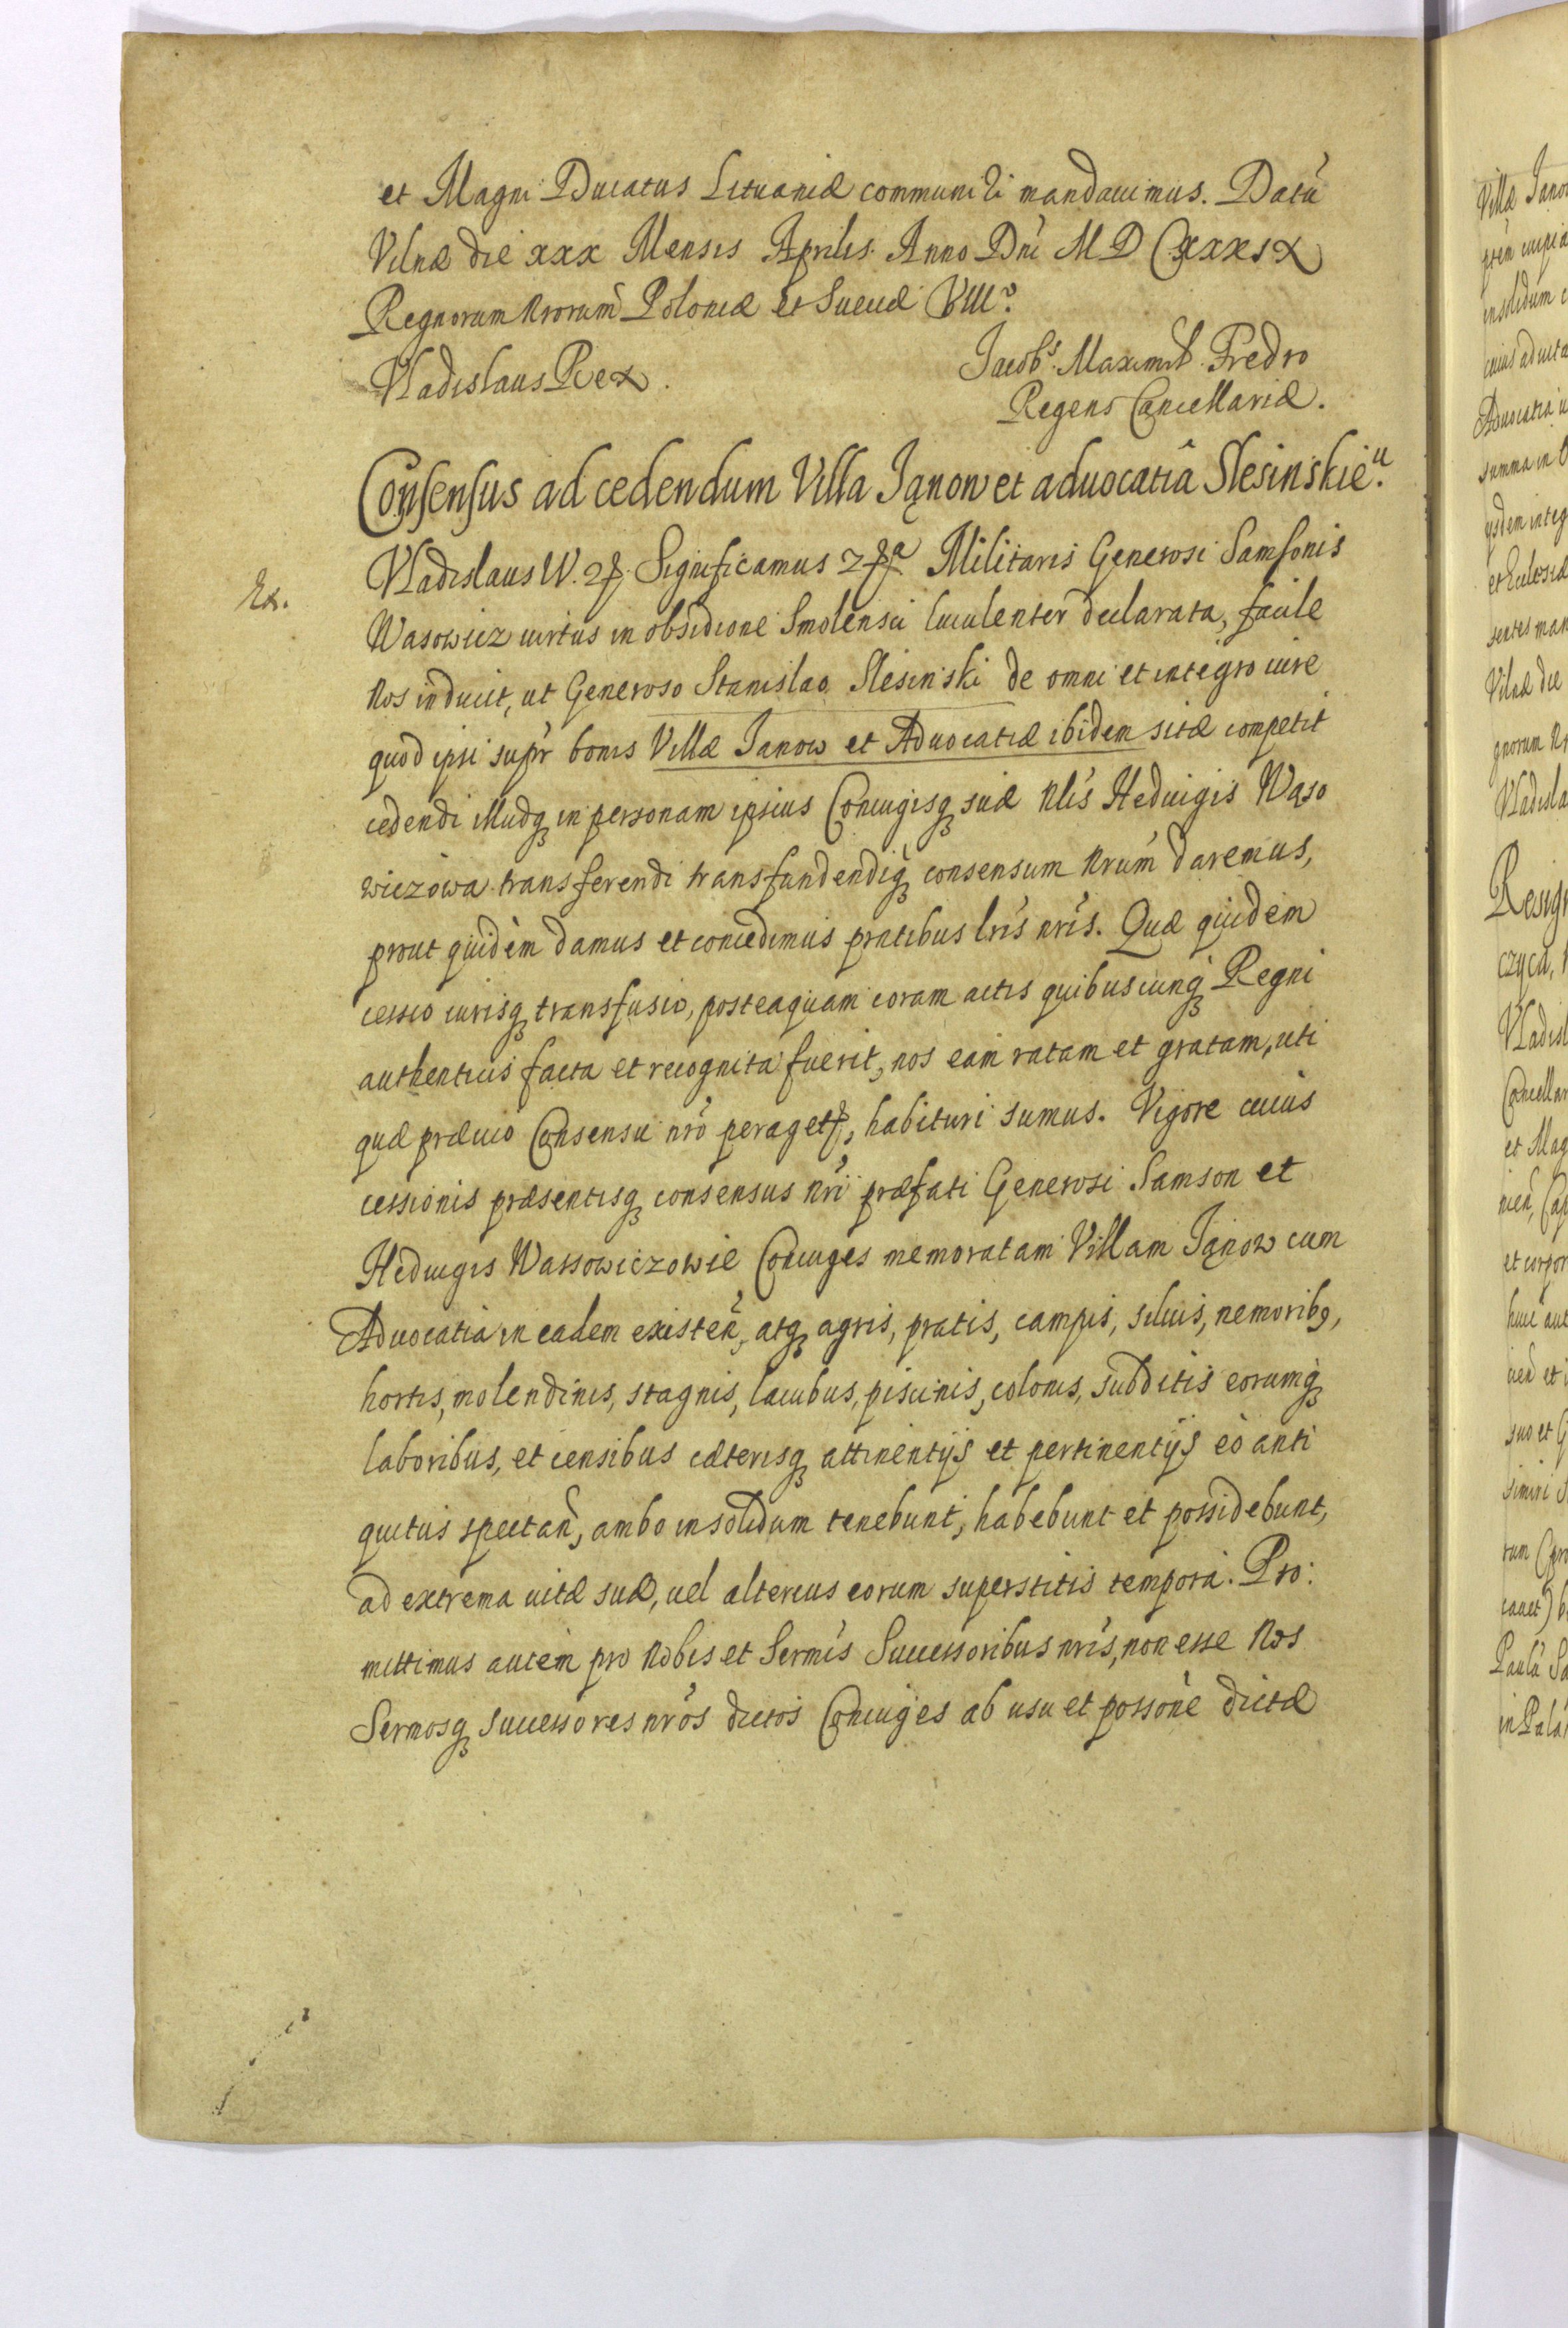 et Magni Ducatus Lituaniæ communiri mandauimus. Datū
Vilnæ die xxx Mensis Aprilis Anno Dni M D CXXXIX
Regnorum Nrorum Poloniæ et Sueciæ VIIIº.
Vladislaus Rex.
Jacobs. Maximil. Fredro
Regens Cancellariæ.
Consensus ad cedendum Villa Janow et aduocatiâ Slesinskieu.
Ex.
Vladislaus IV. Significamus Militaris Generosi Samsonis
Wasowicz uirtus in obsidione Smolensci luculenter declarata, facile
Nos inducit, ut Generoso Stanislao Slesinski de omni et integro iure
quod ipsi supr bonis Villæ Janow et Aduocatiæ ibidem sitæ competit
cedendi illudq in personam ipsius Coniugisq suæ Nlis Heduigis Wąso
wiczowa transferendi transfundendiq consensum Nrum daremus,
prout quidem damus et concedimus pntibus lris nris. Quæ quidem
cessio iurisq transfusio, posteaquam coram actis quibuscunq Regni
authenticis facta et recognita fuerit, nos eam ratam et gratam, uti
quæ præuio Consensu nro peraget, habituri sumus. Vigore cuius
cessionis præsentisq consensus nri præfati Generosi Samson et
Heduigis Wassowiczowie Coniuges memoratam Villam Janow cum
Aduocatia in eadem existen, atq agris, pratis, campis, siluis, nemorib9,
hortis, molendinis, stagnis, lacubus, piscinis, colonis, subditis eorumq
laboribus, et censibus cæterisq attinentijs et pertinentijs eò anti
quitus spectan, ambo insolidum tenebunt, habebunt et possidebunt,
ad extrema uitæ suæ, uel alterius eorum superstitis tempora. Pro:
mittimus autem pro Nobis et Sermis Successoribus nris, non esse Nos
Sermosq successores nros dictos Coniuges ab usu et possone dictæ